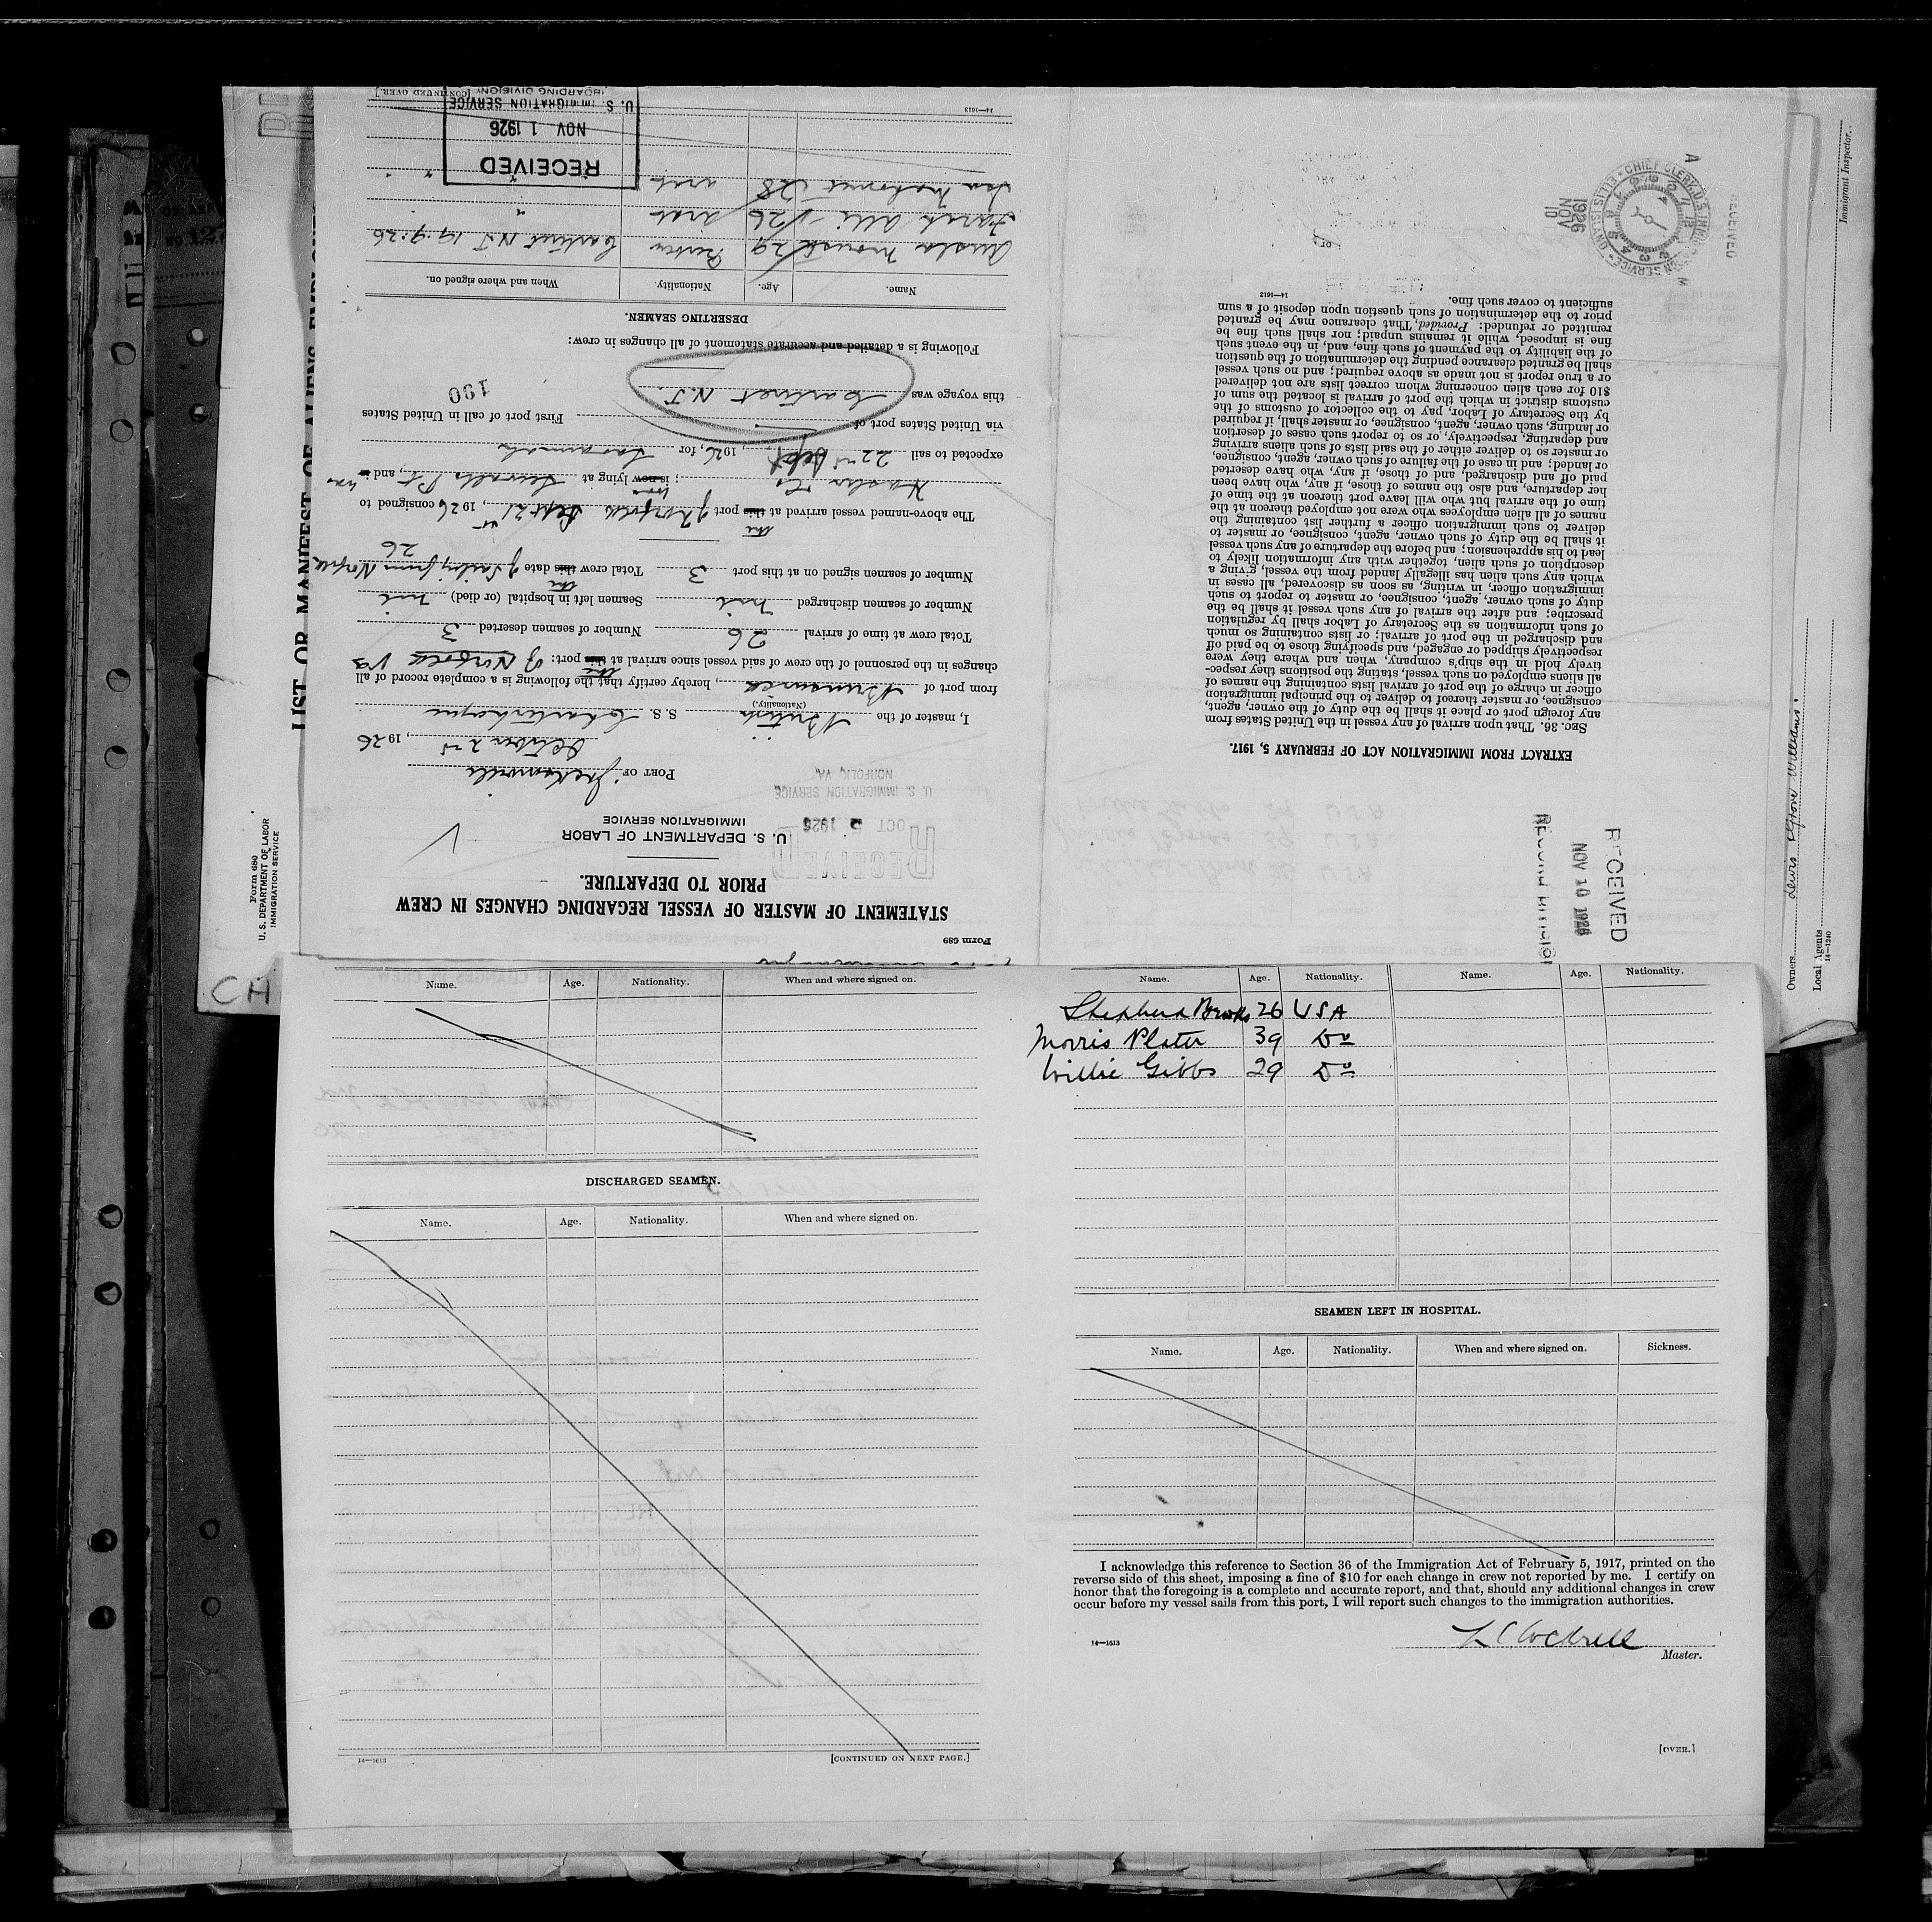 Form 689
STATEMENT OF MASTER OF VESSEL REGARDING CHANGES IN CREW
PRIOR TO DEPARTURE.
U. S. DEPARTMENT OF LABOR
IMMIGRATION SERVICE
RECEIVED
OCT 5 1926
U. S. IMMIGRATION SERVICE
NORFOLK, VA.
PORT OF Jacksonville
October 2nd, 1926
I, master of the British S. S. Charterhague
(Nationality)
from port of Brunswick, hereby certify that the following is a complete record of all
changes in the personnel of the crew of said vessel since arrival at this the port: of Norfolk Va
Total crew at time of arrival 26 Number of seamen deserted 3
Number of seamen discharged nil Seamen left in hospital (or died) nil
Number of seamen signed on at this port 3 Total crew this the date of Sailing from Norfolk 26
The above-named vessel arrived at this the port of Norfolk Sept 21st, 1926 consigned to
; is now lying at Sewalls Pt, and is was
expected to sail 22nd Sept, 1926, for Savannah
via United States port of First port of call in United States
this voyage was Carteret N.J. 190
Following is a detailed and accurate statement of all changes in crew:
DESERTING SEAMEN.
Name. Age. Nationality. When and where signed on.
29 Carteret NJ 19.9.26
Farah Alli 26 Arab "
Mahomet 28 Arab " "
14—1613
[CONTINUED OVER.]
RECEIVED
NOV 1 1926
U. S. IMMIGRATION SERVICE
RECORDING DIVISION
EXTRACT FROM IMMIGRATION ACT OF FEBRUARY 5, 1917.
Sec. 36. That upon arrival of any vessel in the United States from
any foreign port or place it shall be the duty of the owner, agent,
consignee, or master thereof to deliver to the principal immigration
officer in charge of the port of arrival lists containing the names of
all aliens employed on such vessel, stating the positions they respec-
tively hold in the ship's company, when and where they were
respectively shipped or engaged, and specifying those to be paid off
and discharged in the port of arrival; or lists containing so much
of such information as the Secretary of Labor shall by regulation
prescribe; and after the arrival of any such vessel it shall be the
duty of such owner, agent, consignee, or master to report to such
immigration officer, in writing, as soon as discovered, all cases in
which any such alien has illegally landed from the vessel, giving a
description of such alien, together with any information likely to
lead to his apprehension; and before the departure of any such vessel
it shall be the duty of such owner, agent, consignee, or master to
deliver to such immigration officer a further list containing the
names of all alien employees who were not employed thereon at the
time of the arrival but who will leave port thereon at the time of
her departure, and also the names of those, if any, who have been
paid off and discharged, and of those, if any, who have deserted
or landed; and in case of the failure of such owner, agent, consignee,
or master so to deliver either of the said lists of such aliens arriving
and departing, respectively, or so to report such cases of desertion
or landing, such owner, agent, consignee, or master shall, if required
by the Secretary of Labor, pay to the collector of customs of the
customs district in which the port of arrival is located the sum of
$10 for each alien concerning whom correct lists are not delivered
or a true report is not made as above required; and no such vessel
shall be granted clearance pending the determination of the question
of the liability to the payment of such fine, and, in the event such
fine is imposed, while it remains unpaid; nor shall such fine be
remitted or refunded: Provided, That clearance may be granted
prior to the determination of such question upon deposit of a sum
sufficient to cover such fine.
14—1613
RECEIVED
NOV 10 1926
RECORD DIVISION
RECEIVED
CHIEF CLERK, U.S. IMMIGRATION SERVICE ELLIS ISLAND
1926 NOV 10
Immigrant Inspector.
Owners Lewis & Grove Williams.
Local Agents
14—1240
LIST OR MANIFEST OF ALIENS EMPLOYED
Form 680
U. S. DEPARTMENT OF LABOR
IMMIGRATION SERVICE
CH
Name. Age. Nationality. When and where signed on.
DISCHARGED SEAMEN.
Name. Age. Nationality. When and where signed on.
14—1613
[CONTINUED ON NEXT PAGE.]
Name. Age. Nationality. Name. Age. Nationality.
Shepherd Brooks 26 USA
Morris Plater 39 Do
Willie Gibbs 29 Do
SEAMEN LEFT IN HOSPITAL.
Name. Age. Nationality. When and where signed on. Sickness.
I acknowledge this reference to Section 36 of the Immigration Act of February 5, 1917, printed on the
reverse side of this sheet, imposing a fine of $10 for each change in crew not reported by me. I certify on
honor that the foregoing is a complete and accurate report, and that, should any additional changes in crew
occur before my vessel sails from this port, I will report such changes to the immigration authorities.
L Cockrell
14—1613
Master.
[OVER.]